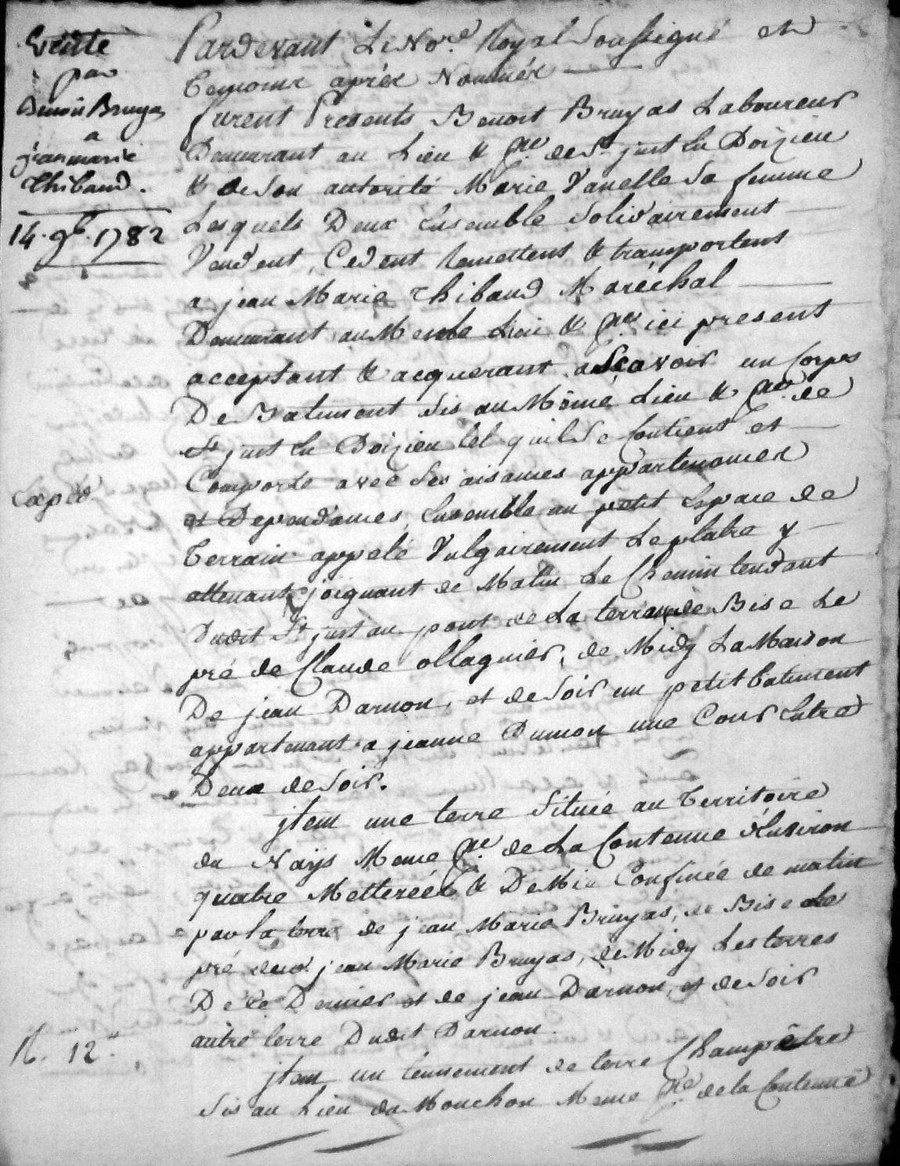 Vente
par
Benoit Bruyas
a
jean marie
Thibaud.
14. 9bre 1782
Expéd
N. 12
Pardevant Le No.re Royal Soussigné et
Temoins après Nommés
furent Presents Benoit Bruyas Laboureur
Demeurant au Lieu & p.sse de S.t just Lu Doizieu
& de son autorité Marie Vanelle Sa femme
Lesquels Deux Ensemble Solidairement
Vendent, Cedent Remettent & transportent
a jean Marie Thibaud Maréchal
Demeurant au Meme Lieu & p.sse ici present
acceptant & acquerant, a Scavoir un Corps
De Batiment Sis au Même Lieu & p.sse de
S.t just Lu Doizieu tel quil Se Contient et
Comporte avec Ses aisances appartenances
et Dependances, Ensemble un petit Espace de
Terrain appelé Vulgairement Le platre y
attenant, joignant de Matin Le Chemin tendant
Dudit S.t just au pont de La terrasse de Bise Le
pré de Claude ollagnier, de Midy La Maison
De jean Darnon, et de Soir un petit batiment
appartenant a jeanne Dumon une Cour Entre
Deux de Soir.
jtem une terre Située au Territoire
du Nays Meme p.sse de La Contenue d'Environ
quatre Metterées & Demie Confinée de matin
par la terre de jean Marie Bruyas, de Bise Le
pré dud. jean Marie Bruyas, de Midy Les terres
De Ce Dernier et de jean Darnon, et de Soir
autre terre Dudit Darnon.
jtem un tennement de terre Champêtre
Sis au Lieu du Mouchon Meme p.sse de la Contenue